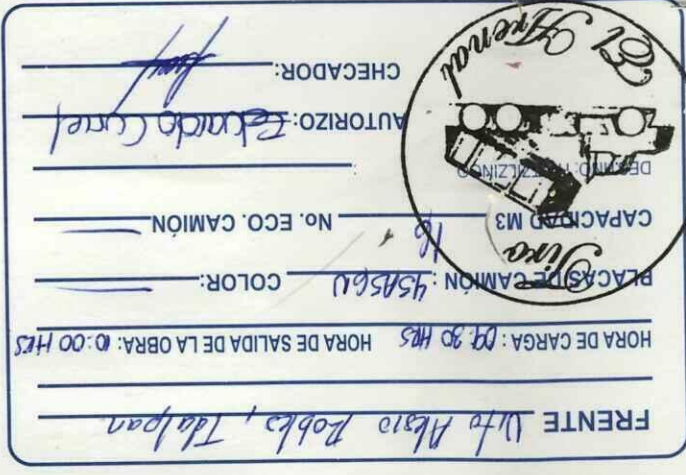 FRENTE Vito Alesio Robles, Tlalpan.
HORA DE CARGA: 09:30 HRS HORA DE SALIDA DE LA OBRA: 10:00 HRS
PLACAS DE CAMIÓN: 45AS6U COLOR:
CAPACIDAD M3 16 No. ECO. CAMIÓN
DESTINO: HUITZILZINGO
AUTORIZO:
CHECADOR:
Tiro
El Arenal